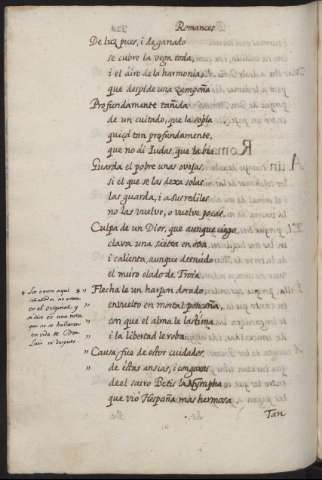 Romances
De luz pues, i de ganado
se cubrio la vega toda,
i el aire de la harmonia,
que despide una zampoña
Profundamente tañida
de un cuitado, que la sopla
quiça tan profundamente,
que no ai Iudas que la oia.
Guarda el pobre unas ovejas,
si el que se las dexa solas
las guarda, i a sus rediles
no las vuelve, o vuelve pocas.
Culpa de un Dios, que aunque ciego
clava una saetta en otra
i calienta, aunque desnudo
el muro elado de Troia.
Flecha le un harpon dorado,
envuelto en mortal ponçoña,
con que el alma le lastima
i la libertad le roba.
Causa fue de estos cuidados,
de estas ansias, i congojas
de el sacro Betis la Nympha
que vio Hespaña más hermosa
Tan
Los ocho aquí
añadidos no estan
en el original, y
se dice
que no se hallaron
en vida de Don
Luis